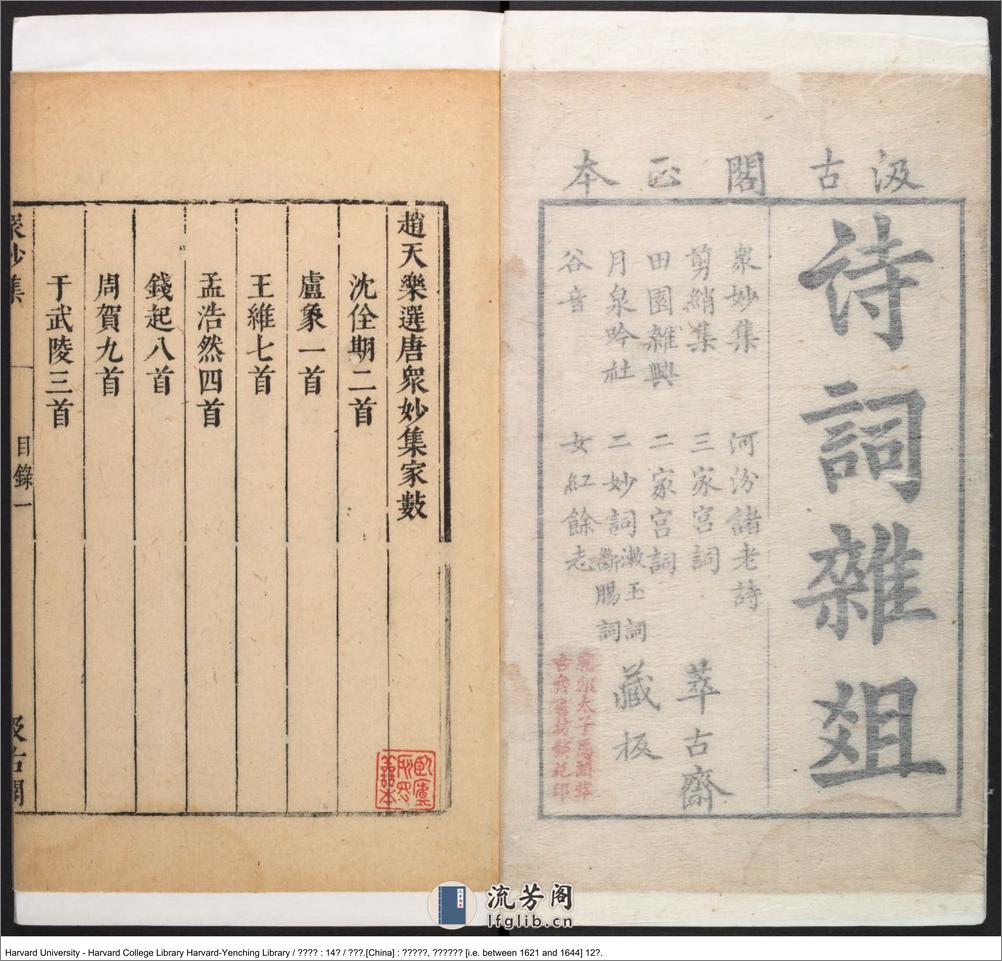 汲古閣正本
詩詞雜爼
衆妙集 河汾諸老詩
剪綃集 三家宮詞
田園雜興 二家宮詞
月泉吟社 二妙詞 漱玉詞 斷腸詞
谷音 女紅餘志
萃古齋
藏板
太子馬頭萃
古齋書坊發兌印
趙天樂選唐衆妙集家數
沈佺期二首
盧象一首
王維七首
孟浩然四首
錢起八首
周賀九首
于武陵三首
衆妙集 目錄一 汲古閣
流芳阁
lfglib.cn
Harvard University - Harvard College Library Harvard-Yenching Library / ???? : 14? / ???.[China] : ?????, ?????? [i.e. between 1621 and 1644] 12?.